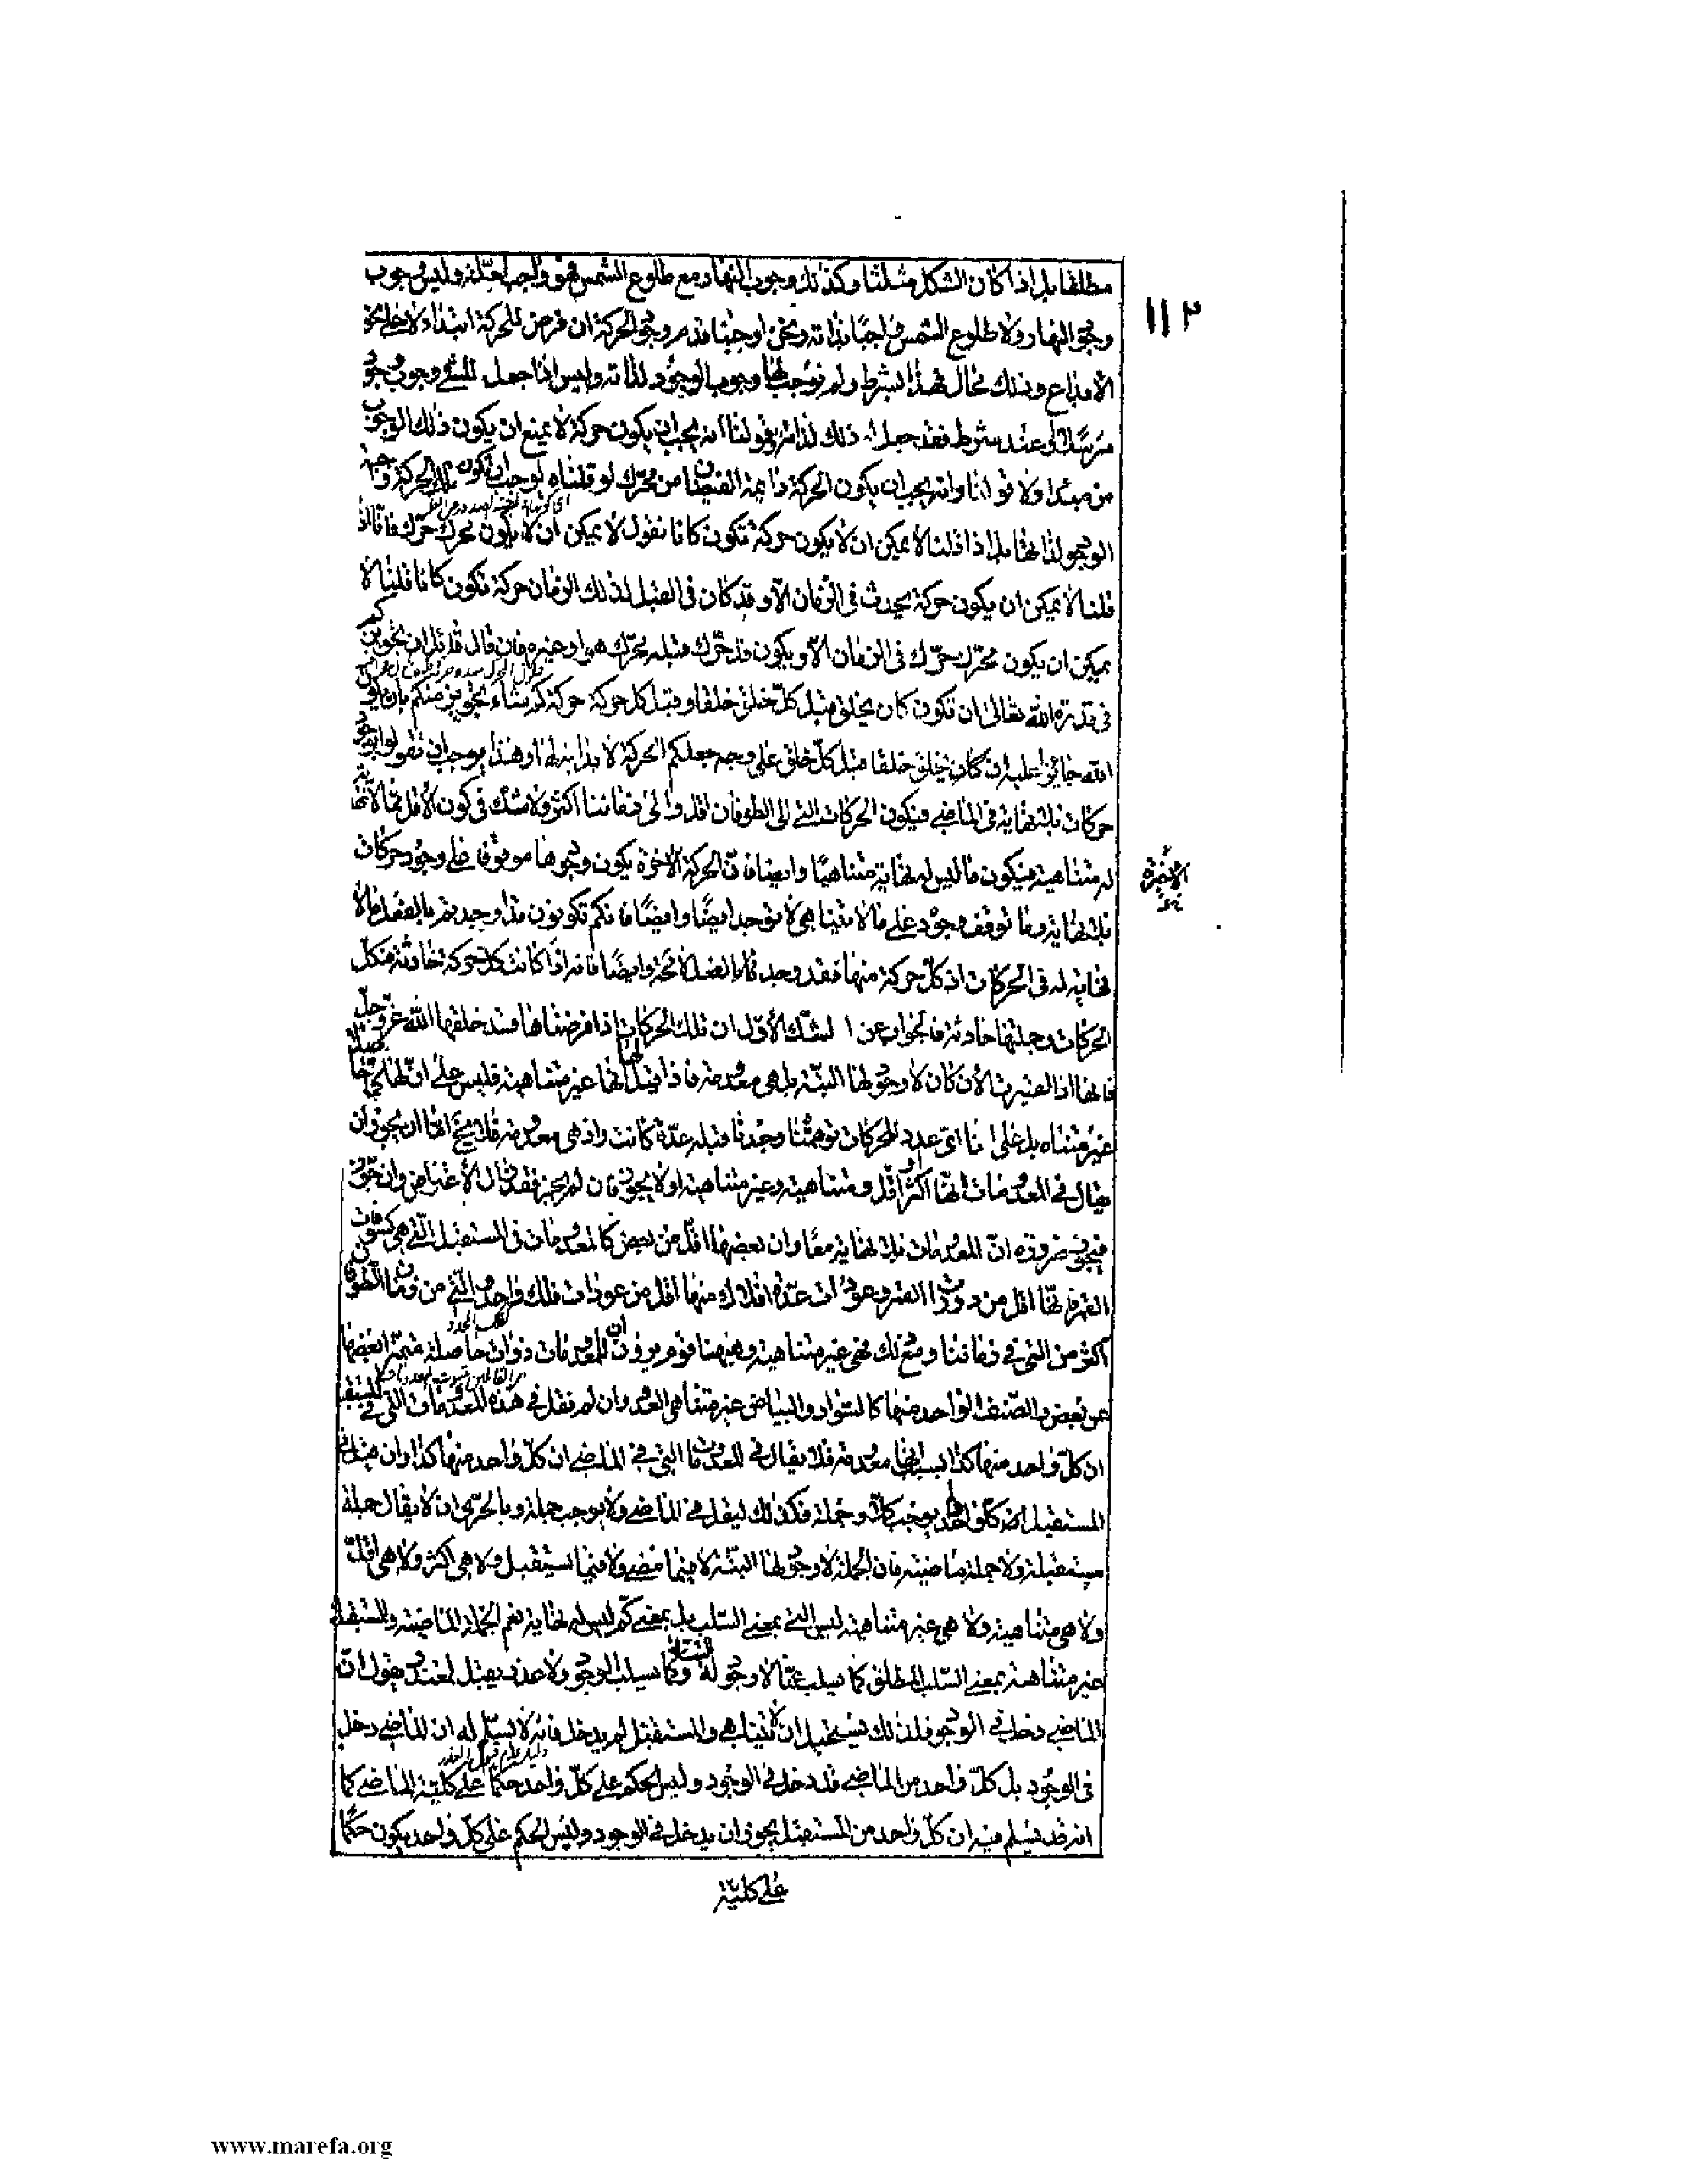 مطلقا بل اذا كان الشكل مثلثا وكذلك وجوب النهار مع طلوع الشمس فهو واجب لعلة وليس وجوب
١١٣
وجود النهار ولا طلوع الشمس واجبا بذاته ونحن اوجبنا قدم وجود الحركة ان فرض للحركة ابتداء لا على نحو
الابداع وذلك محال فهذا لشرط ولم نوجب لها وجوب الوجود لذاته وليس اذا جعل للشئ وجوب وجود
عند شرط فقد جعل له ذلك لذاته وقولنا انه يجب ان يكون حركة لا يمنع ان يكون ذلك الوجوب
من مبدا ولا قولنا وانه يجب ان يكون الحركة من محرك لو قلناه لوجب ان تكون تلك الحركة واجبة
الوجود لذاتها بل اذا قلنا لا يمكن ان لا يكون حركة تكون كانا نقول لا يمكن ان لا يكون محرك حرك فانا اذا
قلنا لا يمكن ان يكون حركة يحدث فى الزمان الا وقد كان فى القبل لذلك الزمان حركة تكون كانا قلنا لا
يمكن ان يكون محرك حرك فى الزمان الا ويكون قد حرك قبله محرك هو او غيره فان قال قائل ان تجويزكم
فى قدرة الله تعالى ان تكون كان يخلق قبل كل خلق خلقا وقبل كل حركة حركة كم شاء تجويز منكم بان يكون
الله جائز عليه ان كان يخلق خلقا قبل كل خلق على وجه جعلكم الحركة لا بداية لها وهذا يوجب ان تقولوا بوجود
حركات بلا نهاية فى الماضى فيكون الحركات التى الى الطوفان اقل والى زماننا اكثر ولا شك فى كون الاقل مما لا نهاية
له متناهية فيكون ما ليس له نهاية متناهيا وايضا فان الحركة الاخرة يكون وجودها موقوفا على وجود حركات
الاخيرة
بلا نهاية وما توقف وجوده على ما لا يتناهى لا يوجد ايضا وايضا فانكم تكونون قد اوجبتم بالفعل ما لا
نهاية له فى الحركات اذ كل حركة منها فقد وجد بالفعل لا محة وايضا فانه اذا كانت كل حركة حادثة فكل
الحركات وجملتها حادثة فالجواب عن الشك الاول ان تلك الحركات اذا فرضناها قد خلقها الله عز وجل
فانها اذا اعتبرت الان كان لا وجود لها البتة بل هى معدومة فاذا قيل لها انها غير متناهية فليس على ان لها كمّا حاصلا
غير متناه بل على انا اى عدد للحركات توهمنا وجدنا قبله عدة كانت واذ هى معدومة فلا يخ اما ان يجوز ان
يقال فى المعدومات انها اكثر او اقل ومتناهية وغير متناهية او لا يجوز فان لم يجز فقد زال الاعتراض وان جوز
فيجوز ضرورة ان المعدومات بلا نهاية معا وان بعضها اقل من بعض كالمعدومات فى المستقبل التى هى كسوفات
القمر فانها اقل من دورات القمر وعودات عدة افلاك منها اقل من عودات فلك واحد والتى من زمان الطوفان
اكثر من التى فى زماننا ومع ذلك فهى غير متناهية وههنا قوم يرون ان للمعدومات ذوات حاصلة متميزة بعضها
عن بعض والصنف الواحد منها كالسواد والبياض غير متناهى العدد وان لم نقل فى هذه المعدومات التى فى المستقبل
ان كل واحد منها كذا بسبب انها معدومة فلا يقال فى المعدومات التى فى الماضى ان كل واحد منها كذا وان قيل فى
المستقبل ان كل واحد لا يوجب كلا وجملة فكذلك ليقل فى الماضى ولا يوجب جملة وبالحرى ان لا يقال جملة
مستقبلة ولا جملة ماضية فان الجملة لا وجود لها البتة لا فيما مضى ولا فيما يستقبل ولا هى اكثر ولا هى اقل
ولا هى متناهية ولا هى غير متناهية ليس التى بمعنى السلب بل بمعنى كم ليس له نهاية نعم الجملة الماضية والمستقبلة
غير متناهية بمعنى السلب المطلق كما يسلب عما لا وجود له وكما يسلب الوجود ولا عذر يقبل لعنيد يقول ان
الماضى دخل فى الوجود فلذلك يستحيل ان لا يتناهى والمستقبل لم يدخل فانه لا يسلم له ان الماضى دخل
فى الوجود بل كل واحد من الماضى قد دخل فى الوجود وليس الحكم على كل واحد حكما على كلية الماضى كما
انه قد يسلم فيه ان كل واحد من المستقبل يجوز ان يدخل فى الوجود وليس الحكم على كل واحد يكون حكما
على كلية
www.marefa.org